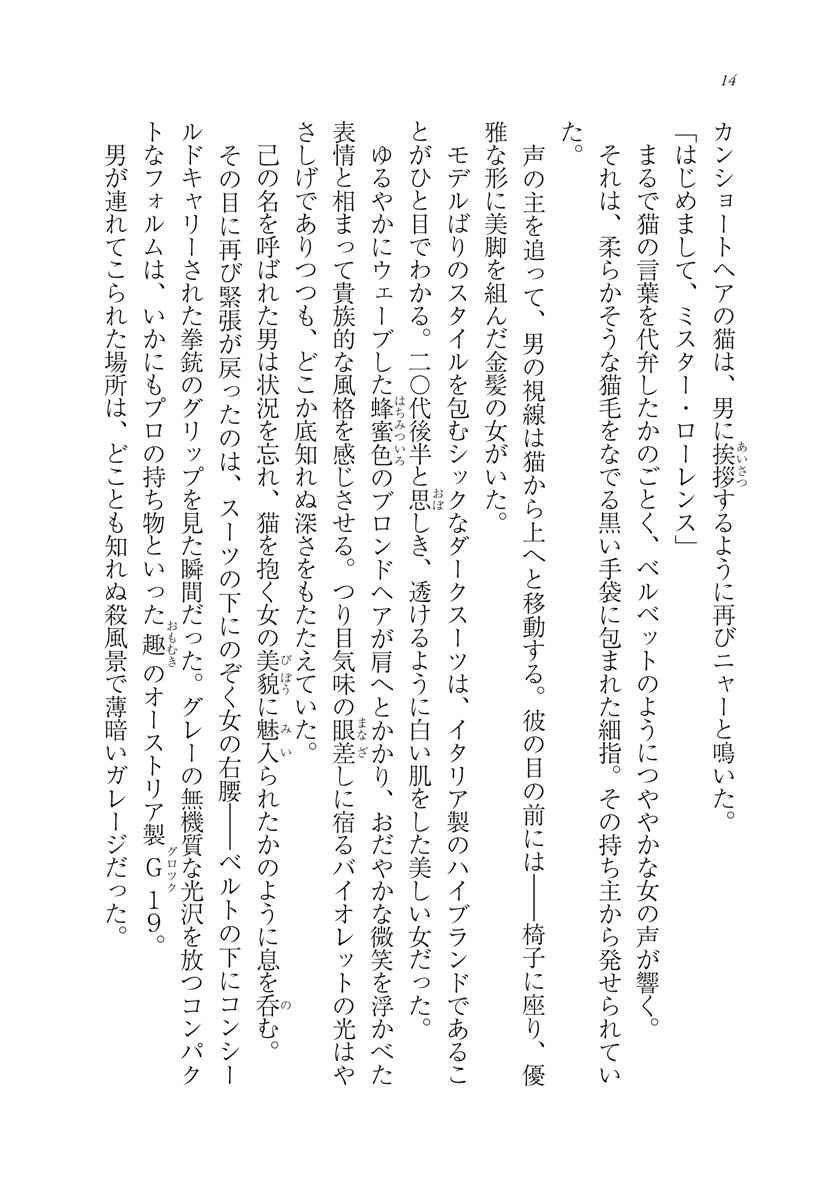 14
カンショートヘアの猫は、男に挨拶するように再びニャーと鳴いた。
「はじめまして、ミスター・ローレンス」
まるで猫の言葉を代弁したかのごとく、ベルベットのようにつややかな女の声が響く。
それは、柔らかそうな猫毛をなでる黒い手袋に包まれた細指。その持ち主から発せられてい
た。
声の主を追って、男の視線は猫から上へと移動する。彼の目の前には――椅子に座り、優
雅な形に美脚を組んだ金髪の女がいた。
モデルばりのスタイルを包むシックなダークスーツは、イタリア製のハイブランドであるこ
とがひと目でわかる。二〇代後半と思しき、透けるように白い肌をした美しい女だった。
ゆるやかにウェーブした蜂蜜色のブロンドヘアが肩へとかかり、おだやかな微笑を浮かべた
表情と相まって貴族的な風格を感じさせる。つり目気味の眼差しに宿るバイオレットの光はや
さしげでありつつも、どこか底知れぬ深さをもたたえていた。
己の名を呼ばれた男は状況を忘れ、猫を抱く女の美貌に魅入られたかのように息を呑む。
その目に再び緊張が戻ったのは、スーツの下にのぞく女の右腰――ベルトの下にコンシー
ルドキャリーされた拳銃のグリップを見た瞬間だった。グレーの無機質な光沢を放つコンパク
トなフォルムは、いかにもプロの持ち物といった趣のオーストリア製G19。
男が連れてこられた場所は、どことも知れぬ殺風景で薄暗いガレージだった。